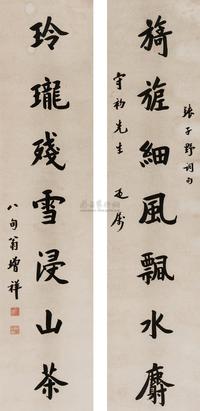 張子野詞句
旖旎細風飄水麝
守 先生
玲瓏殘雪浸山茶
八旬翁增祥